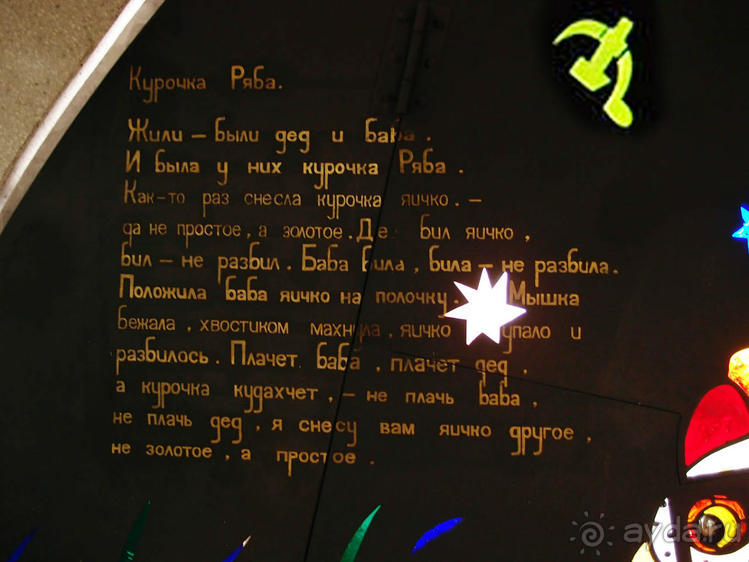 Курочка Ряба.
Жили – были дед и баба.
И была у них курочка Ряба.
Как-то раз снесла курочка яичко. –
да не простое, а золотое. Де бил яичко,
бил – не разбил. Баба била, била – не разбила.
Положила баба яичко на полочку. Мышка
бежала, хвостиком махнула, яичко упало и
разбилось. Плачет баба, плачет дед,
а курочка кудахчет, – не плачь баба,
не плачь дед, я снесу вам яичко другое,
не золотое, а простое.
ayda.ru